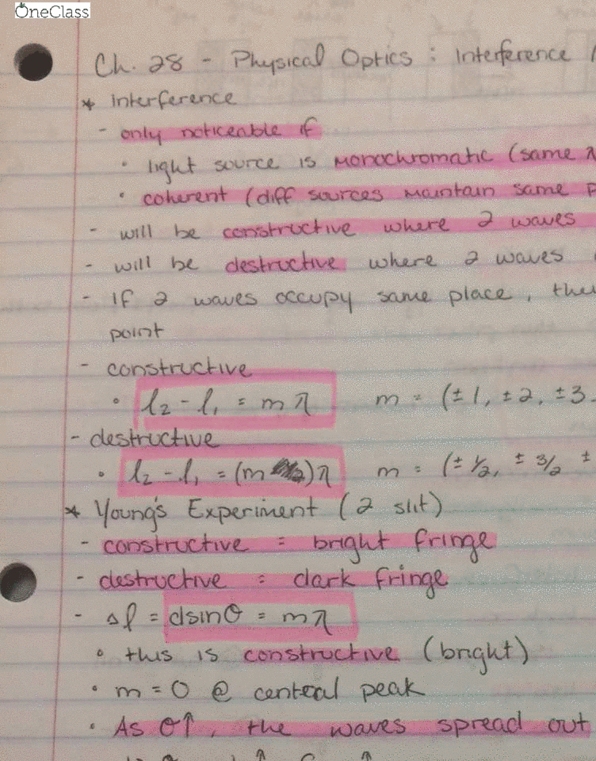 OneClass
Ch. 28 - Physical Optics : Interference
* Interference
- only noticeable if
• light source is monochromatic (same λ
• coherent (diff sources maintain same p
- will be constructive where 2 waves
- will be destructive where 2 waves
- If 2 waves occupy same place, the
point
- constructive
• l₂ - l₁ = mλ m = (±1, ±2, ±3.
- destructive
• l₂ - l₁ = (m )λ m = (±1/2, ±3/2 ±
* Young's Experiment (2 slit)
- constructive = bright fringe
- destructive = dark fringe
- Δl = dsinθ = mλ
• this is constructive (bright)
• m = 0 @ central peak
• As θ↑, the waves spread out